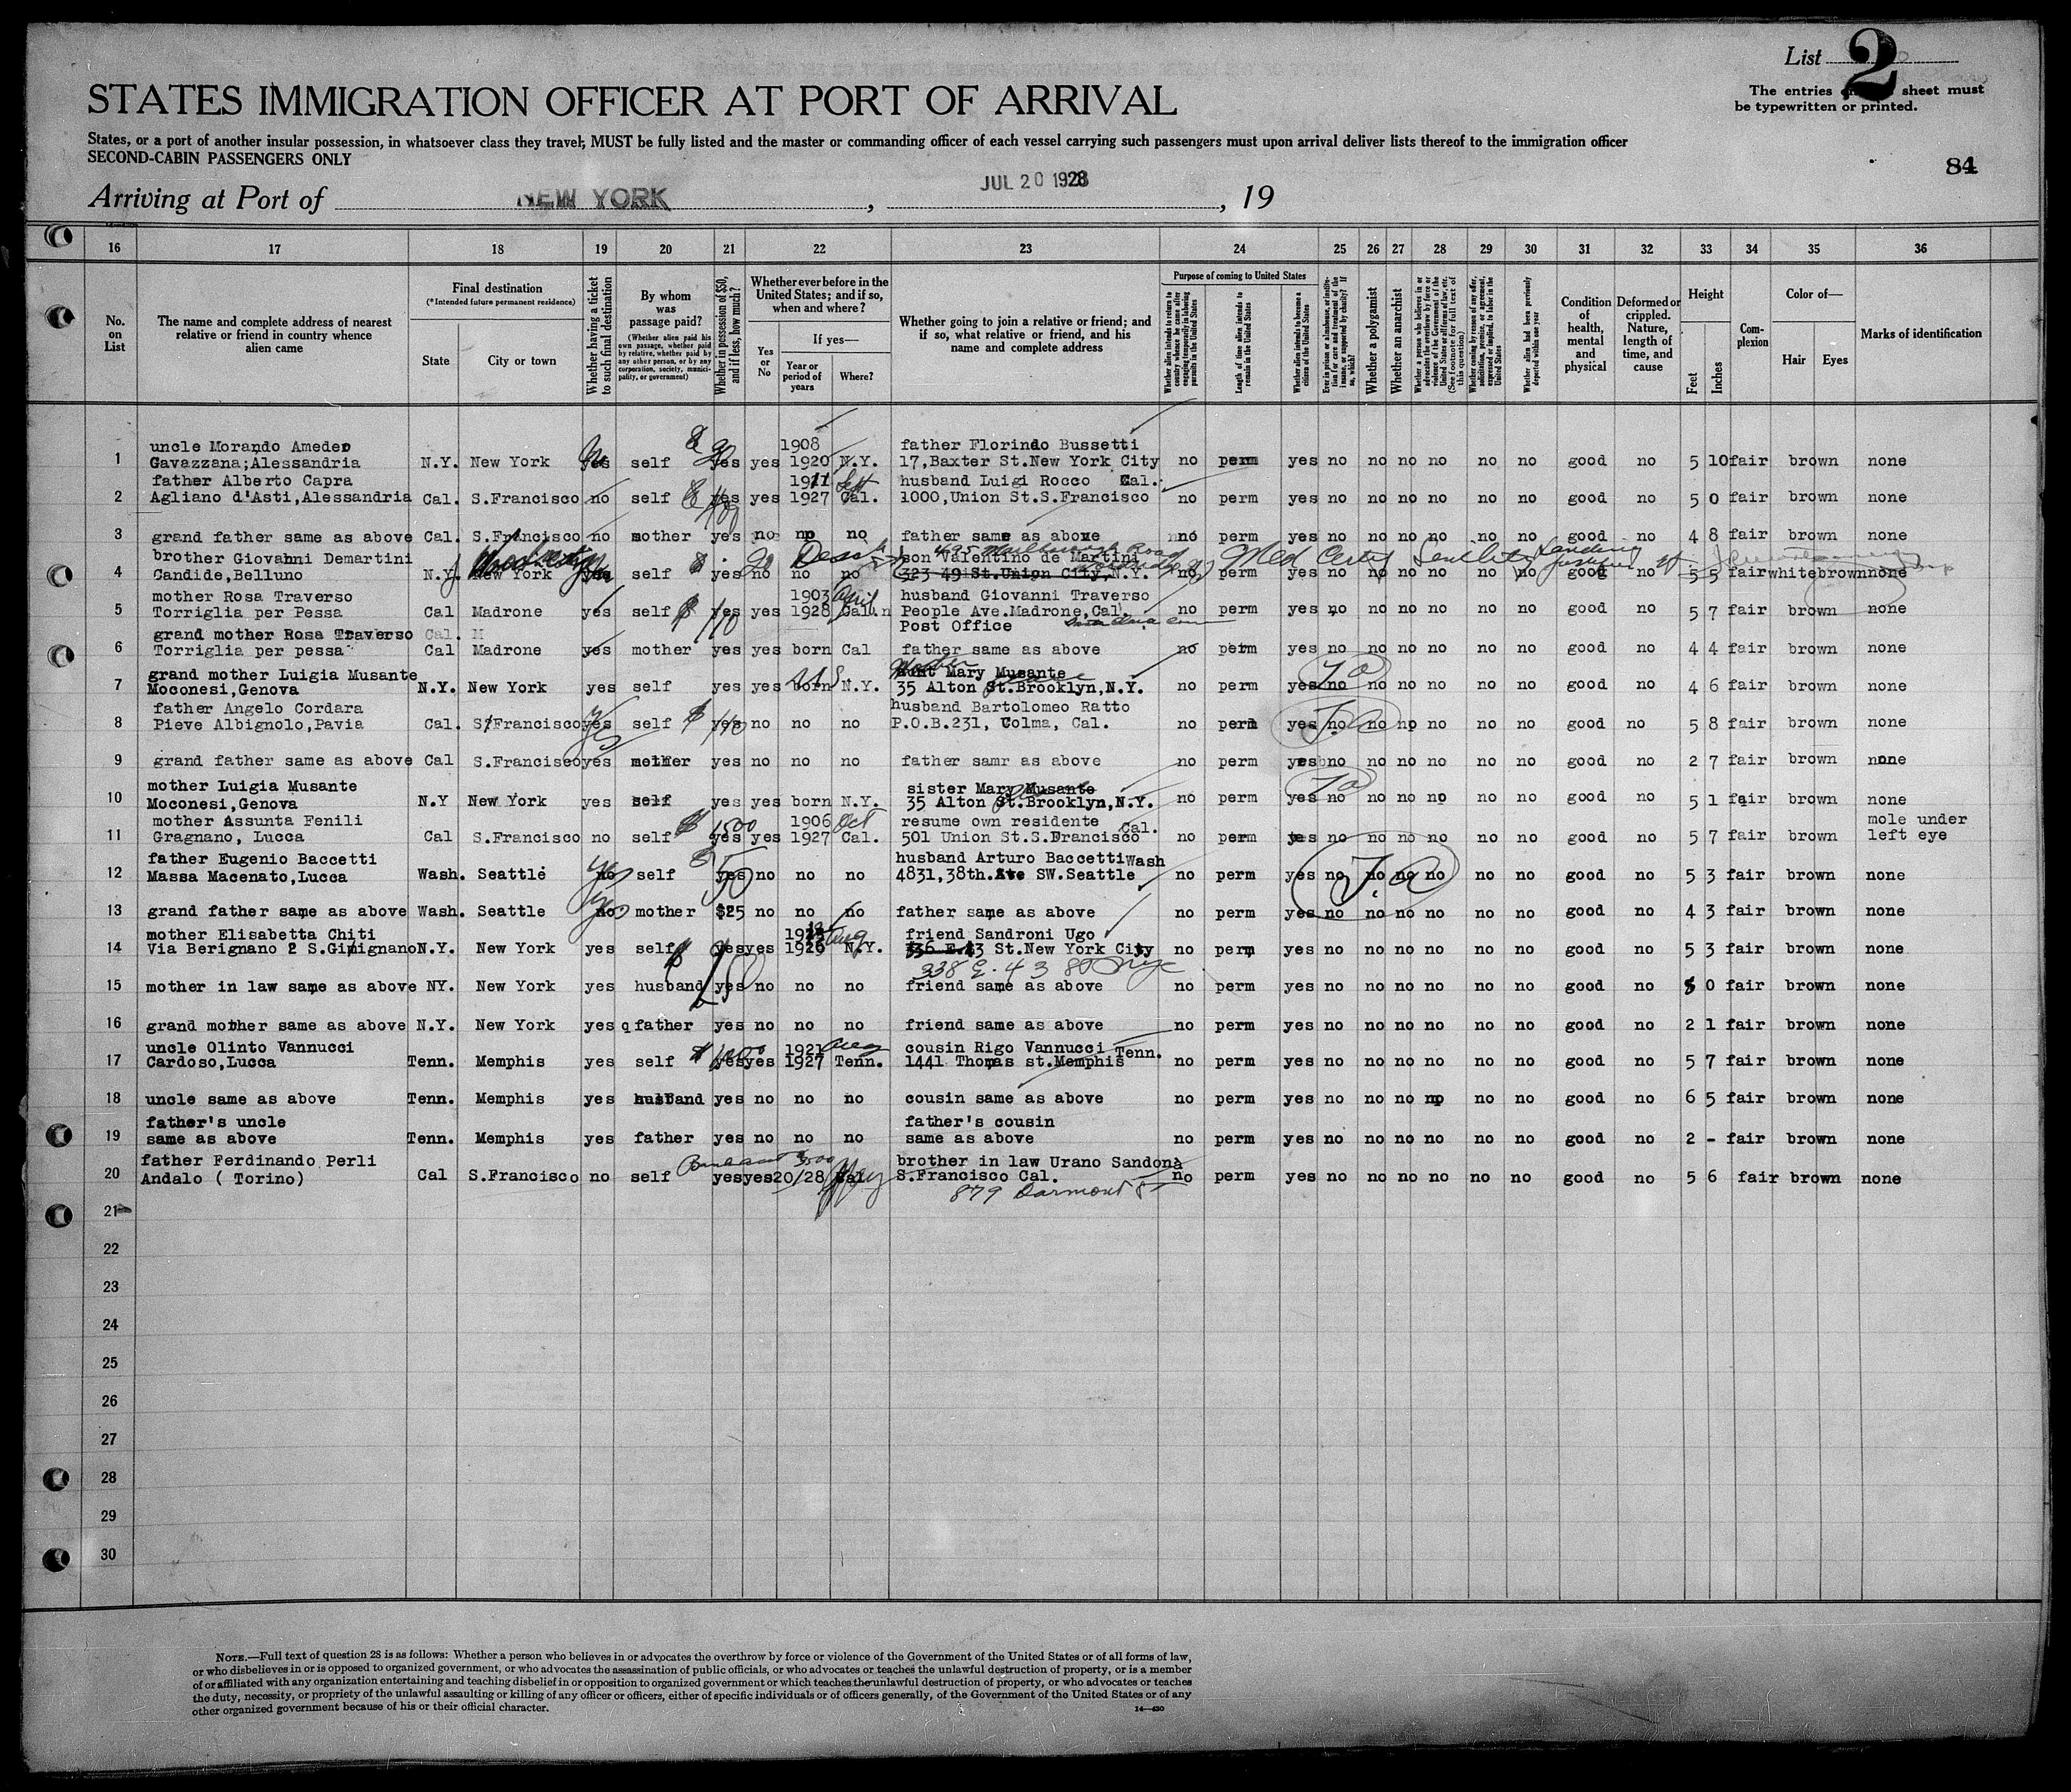 List 2
The entries sheet must
be typewritten or printed.
STATES IMMIGRATION OFFICER AT PORT OF ARRIVAL
States, or a port of another insular possession, in whatsoever class they travel, MUST be fully listed and the master or commanding officer of each vessel carrying such passengers must upon arrival deliver lists thereof to the immigration officer
SECOND-CABIN PASSENGERS ONLY
84
Arriving at Port of NEW YORK, JUL 20 1928, 19
16 17 18 19 20 21 22 23 24 25 26 27 28 29 30 31 32 33 34 35 36
No. on List
The name and complete address of nearest relative or friend in country whence alien came
Final destination
(*Intended future permanent residence)
State
City or town
Whether having a ticket to such final destination
By whom was passage paid?
(Whether alien paid his own passage, whether paid by relative, whether paid by any other person, or by any corporation, society, municipality, or government)
Whether in possession of $50, and if less, how much?
Whether ever before in the United States; and if so, when and where?
Yes or No
If yes—
Year or period of years
Where?
Whether going to join a relative or friend; and if so, what relative or friend, and his name and complete address
Purpose of coming to United States
Whether alien intends to return to country whence he came after engaging temporarily in laboring pursuits in the United States
Length of time alien intends to remain in the United States
Whether alien intends to become a citizen of the United States
Whether a polygamist
Whether an anarchist
Whether alien had been previously deported within one year
Condition of health, mental and physical
Deformed or crippled. Nature, length of time, and cause
Height
Feet
Inches
Complexion
Color of—
Hair
Eyes
Marks of identification
uncle Morando Amedeo 1908 father Florindo Bussetti
1 Gavazzana;Alessandria N.Y. New York yes self yes yes 1920 N.Y. 17,Baxter St.New York City no perm yes no no no no no no good no 5 10 fair brown none
father Alberto Capra 1911 Sept husband Luigi Rocco Cal.
2 Agliano d'Asti,Alessandria Cal. S.Francisco no self yes yes 1927 Cal. 1000,Union St.S.Francisco no perm yes no no no no no no good no 5 0 fair brown none
3 grand father same as above Cal. S.Francisco no mother yes no no no father same as above no perm yes no no no no no no good no 4 8 fair brown none
brother Giovanni Demartini son Valentino de Martini
4 Candide,Belluno N.Y. New York yes self yes no no no 323 49 St.Union City,N.Y. no perm yes no no no no no no good no 5 5 fair white brown none
Med Certif Senility Landing
mother Rosa Traverso 1903 April husband Giovanni Traverso
5 Torriglia per Pessa Cal Madrone yes self $110 yes yes 1928 Calin People Ave.Madrone,Cal. no perm yes no no no no no no good no 5 7 fair brown none
grand mother Rosa Traverso Cal. M Post Office
6 Torriglia per pessa Cal Madrone yes mother yes yes born Cal father same as above no perm yes no no no no no no good no 4 4 fair brown none
grand mother Luigia Musante Aunt Mary Musante
7 Moconesi,Genova N.Y. New York yes self yes yes born N.Y. 35 Alton St.Brooklyn,N.Y. no perm yes no no no no no no good no 4 6 fair brown none
father Angelo Cordara husband Bartolomeo Ratto
8 Pieve Albignolo,Pavia Cal. S/Francisco yes self yes no no no P.O.B.231, Colma, Cal. no perm yes no no no no no no good no 5 8 fair brown none
9 grand father same as above Cal S.Francisco yes mother yes no no no father samr as above no perm yes no no no no no no good no 2 7 fair brown none
mother Luigia Musante sister Mary Musante
10 Moconesi,Genova N.Y New York yes self yes yes born N.Y. 35 Alton St.Brooklyn,N.Y. no perm yes no no no no no no good no 5 1 fair brown none
mother Assunta Fenili $1500 1906 Oct resume own residente mole under
11 Gragnano, Lucca Cal S.Francisco no self yes yes 1927 Cal. 501 Union St.S.Francisco Cal. no perm yes no no no no no no good no 5 7 fair brown left eye
father Eugenio Baccetti husband Arturo Baccetti Wash
12 Massa Macenato,Lucca Wash. Seattle no yes self 50 yes no no no 4831,38th.Ave SW.Seattle no perm yes no no no no no no good no 5 3 fair brown none
13 grand father same as above Wash. Seattle no yes mother $25 no no no father same as above no perm yes no no no no no no good no 4 3 fair brown none
mother Elisabetta Chiti Aug friend Sandroni Ugo
14 Via Berignano 2 S.Gimignano N.Y. New York yes self yes yes 1926 N.Y. 336 E.43 St.New York City no perm yes no no no no no no good no 5 3 fair brown none
338 E. 43
15 mother in law same as above NY. New York yes husband yes no no no friend same as above no perm yes no no no no no no good no 5 0 fair brown none
16 grand mother same as above N.Y. New York yes father yes no no no friend same as above no perm yes no no no no no no good no 2 1 fair brown none
uncle Olinto Vannucci 1921 Aug cousin Rigo Vannucci Tenn.
17 Cardoso,Lucca Tenn. Memphis yes self yes yes 1927 Tenn. 1441 Thomas st.Memphis no perm yes no no no no no no good no 5 7 fair brown none
18 uncle same as above Tenn. Memphis yes husband yes no no no cousin same as above no perm yes no no no no no no good no 6 5 fair brown none
father's uncle father's cousin
19 same as above Tenn. Memphis yes father yes no no no same as above no perm yes no no no no no no good no 2 - fair brown none
father Ferdinando Perli brother in law Urano Sandona
20 Andalo ( Torino) Cal S.Francisco no self yes yes 20/28 Cal S.Francisco Cal. no perm yes no no no no no no good no 5 6 fair brown none
21
22
23
24
25
26
27
28
29
30
NOTE.—Full text of question 28 is as follows: Whether a person who believes in or advocates the overthrow by force or violence of the Government of the United States or of all forms of law,
or who disbelieves in or is opposed to organized government, or who advocates the assassination of public officials, or who advocates or teaches the unlawful destruction of property, or is a member
of or affiliated with any organization entertaining and teaching disbelief in or opposition to organized government or which teaches the unlawful destruction of property, or who advocates or teaches
the duty, necessity, or propriety of the unlawful assaulting or killing of any officer or officers, either of specific individuals or of officers generally, of the Government of the United States or of any
other organized government because of his or their official character.
14—430